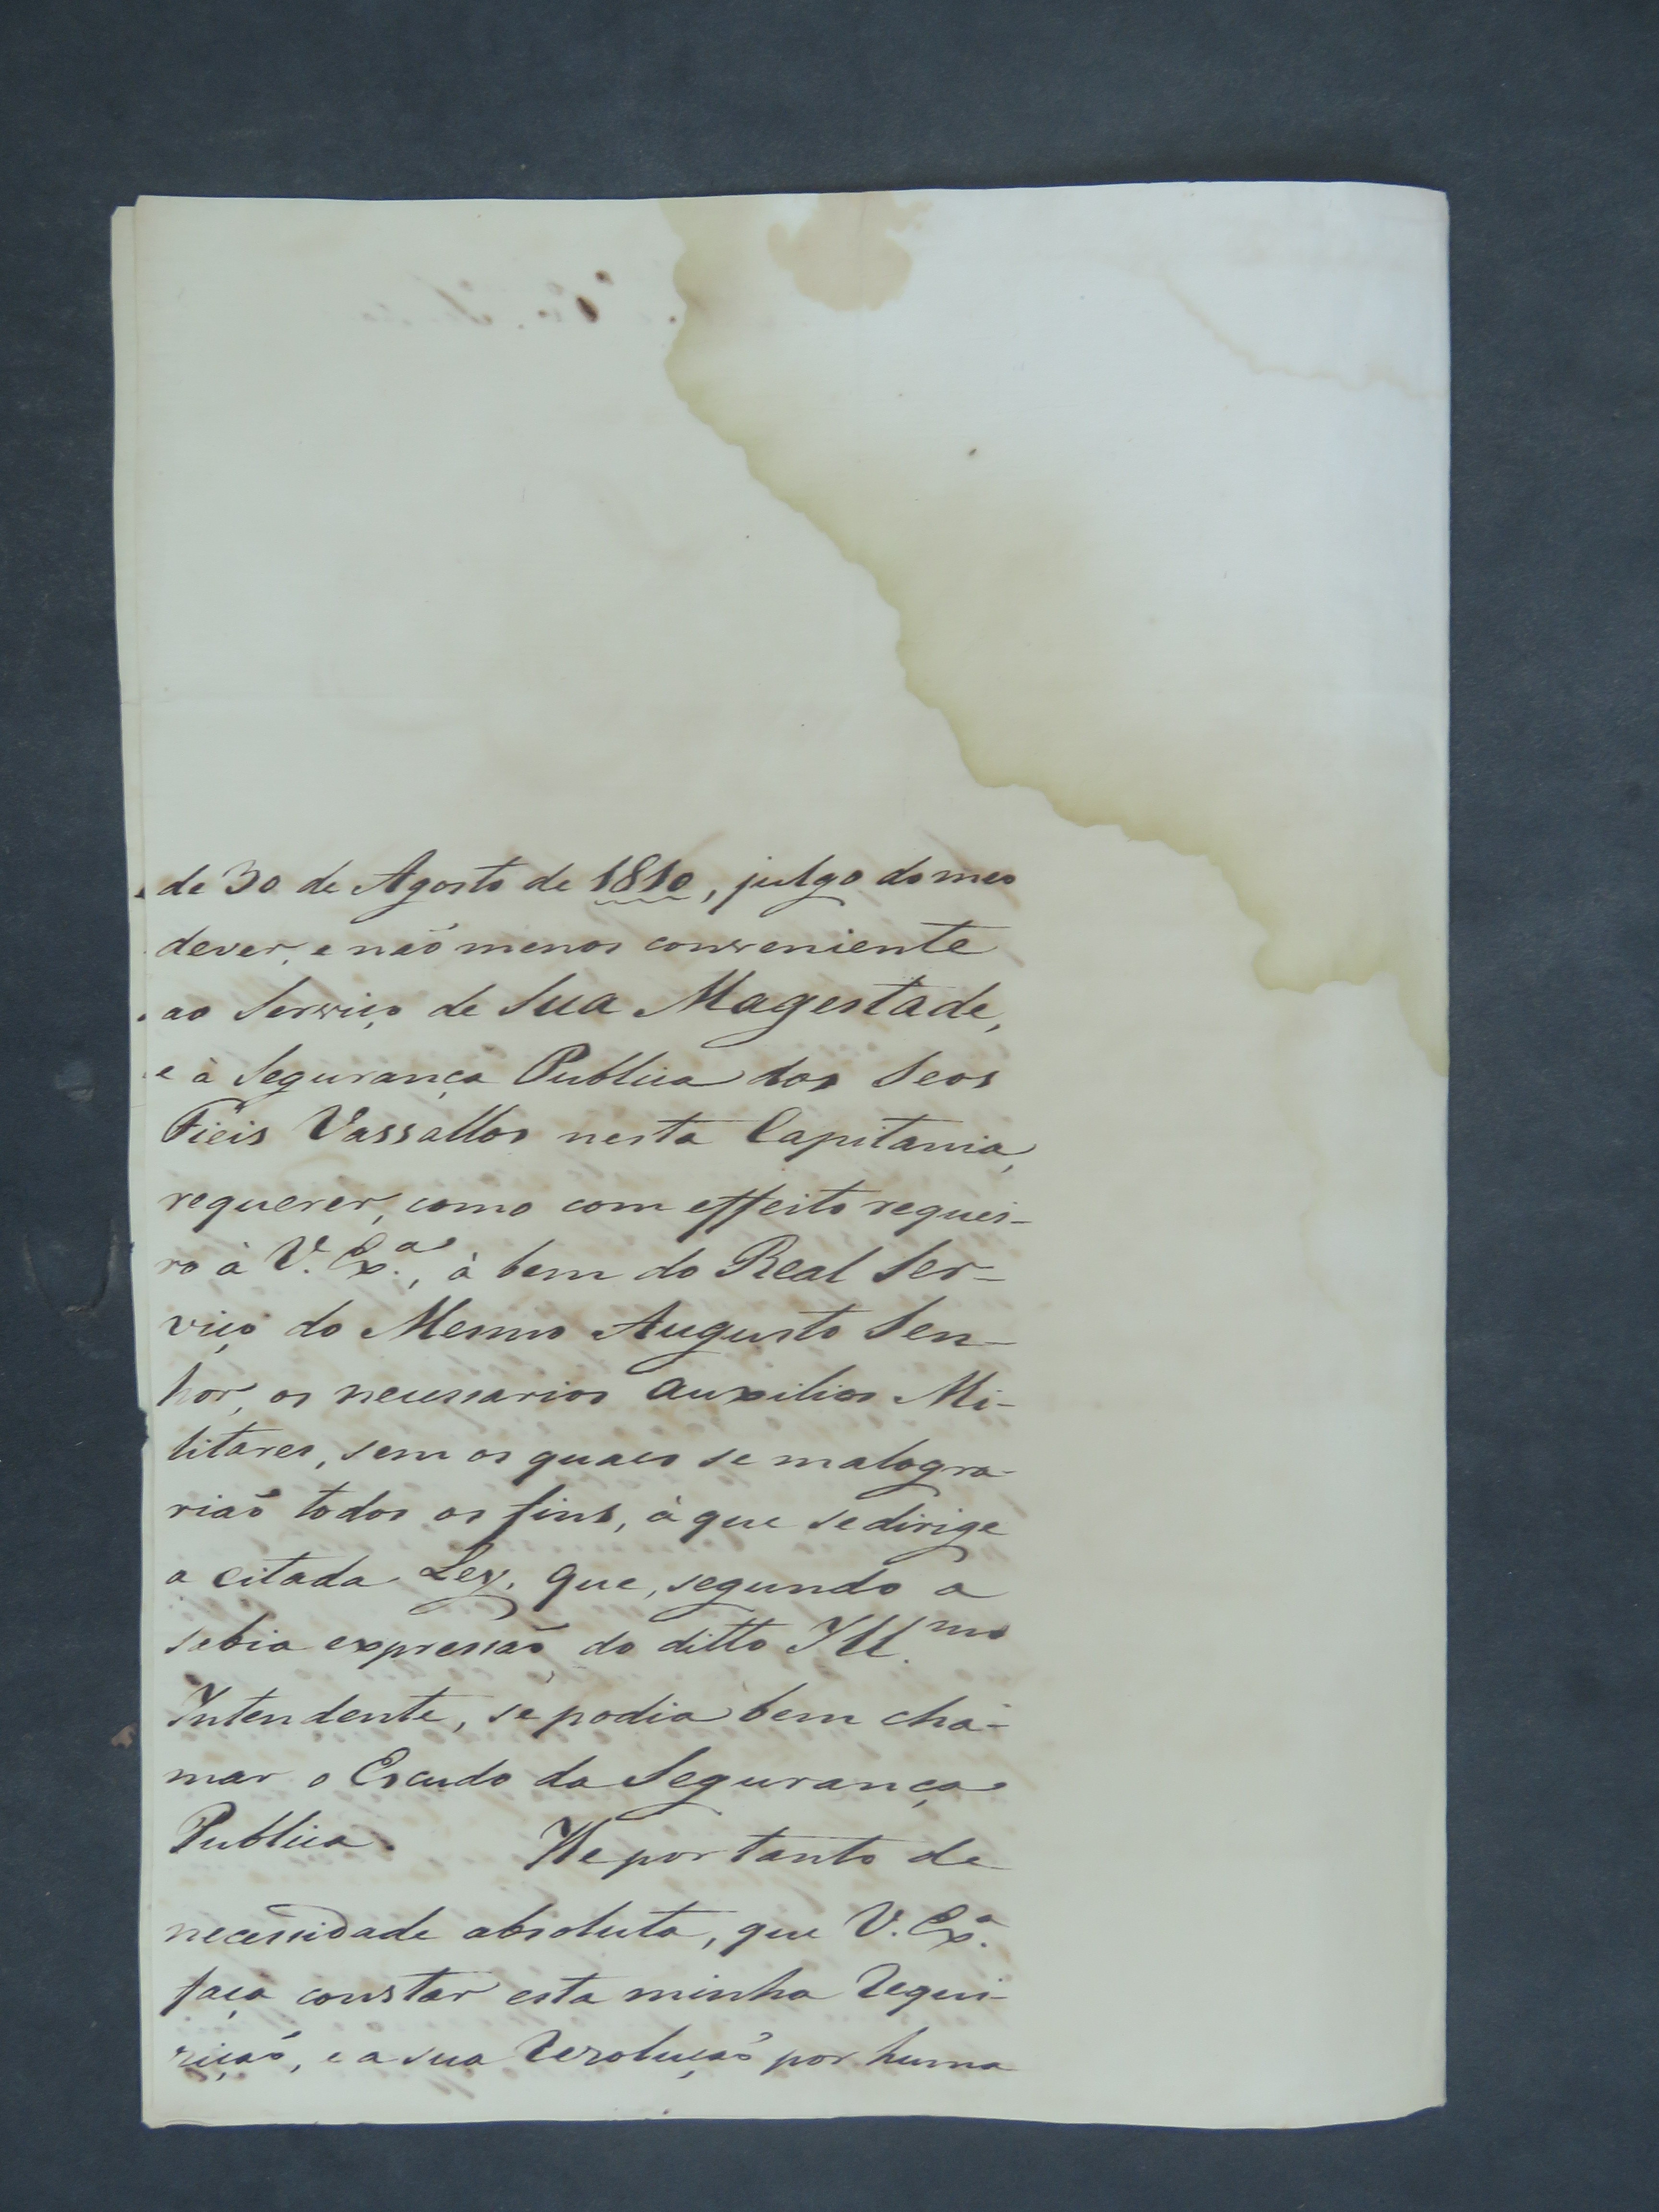 de 30 de Agosto de 1810, julgo do meo
dever, e naõ menos conveniente
ao Serviço de Sua Magestade,
e à Segurança Publica dos Seos
Fieis Vassallos nesta Capitania,
requerer, como com effeito requei-
ro à V. Ex.ª, à bem do Real Ser-
viço do Mesmo Augusto Sen-
hor, os necessarios auxilios Mi-
litares, sem os quaes se malogra-
riaõ todos os fins, à que se dirige
a citada Ley, que, segundo a
sabia expressaõ do ditto Ill.mo
Intendente, se podia bem cha-
mar o Escudo da Segurança
Publica. He por tanto de
necessidade absoluta, que V. Ex.ª
faça constar esta minha Requi-
siçaõ, e a sua Resoluçaõ por huma